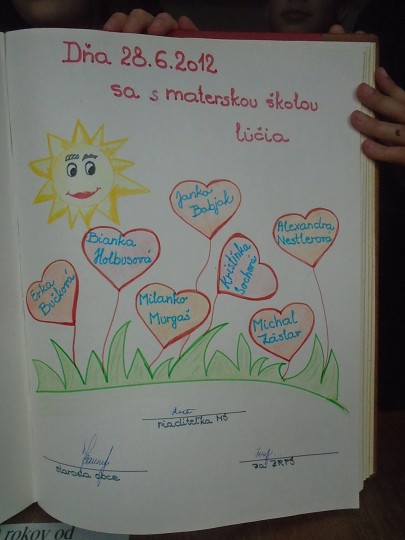 Dňa 28.6.2012
sa s materskou školou
lúčia
Janko
Babjak
Alexandra
Nestlerová
Bianka
Holbusová
Kristínka
Sochová
Erka
Bučková
Milanko
Murgaš
Michal
Záslav
riaditeľka MŠ
starosta obce
za ZRPŠ
rokov od